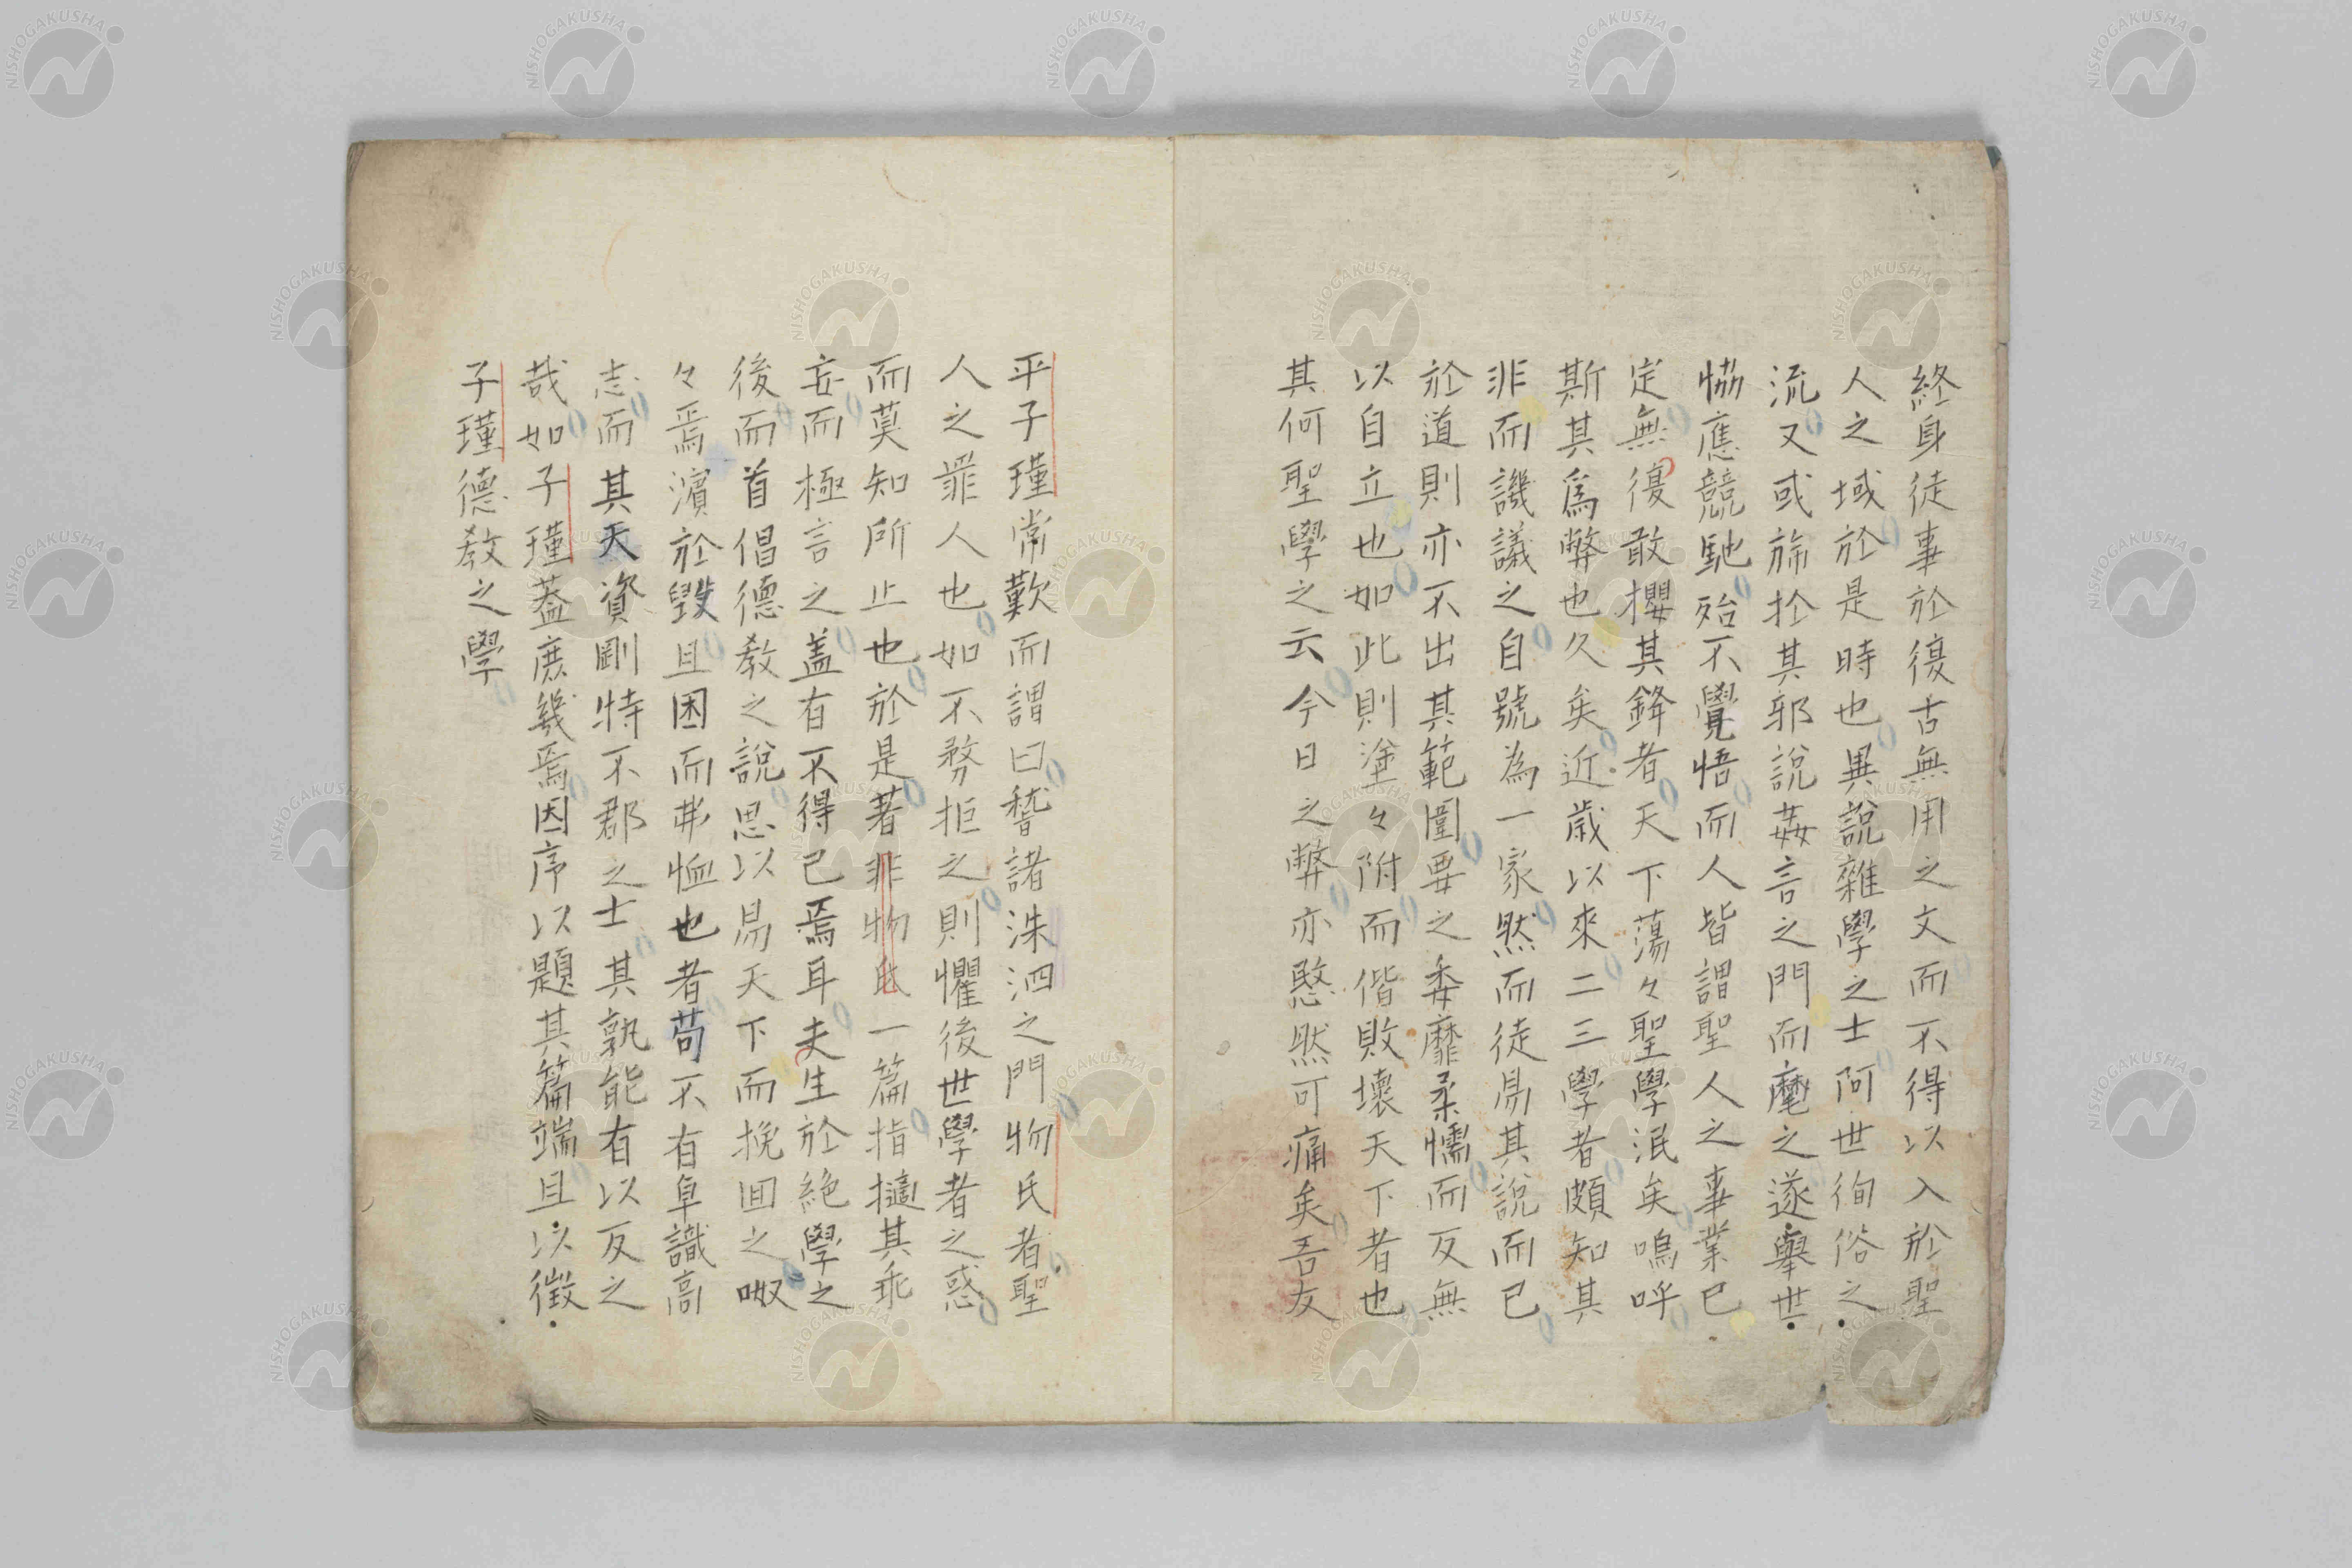 終身徒事於復古無用之文而不得以入於聖
人之域於是時也異說雜學之士阿世徇俗之
流又或旆於其邪說姦言之門而麾之遂擧世
恊應競馳殆不覺悟而人皆謂聖人之事業已
定無復敢攖其鋒者天下蕩々聖學泯矣嗚呼
斯其爲弊也久矣近歲以來二三學者頗知其
非而譏議之自號為一家然而徒易其說而已
於道則亦不出其範圍要之委靡柔懦而反無
以自立也如此則塗々附而偕敗壞天下者也
其何聖學之云今日之弊亦愍然可痛矣吾友
平子瑾常歎而謂曰嗟諸洙泗之門物氏者聖
人之罪人也如不務拒之則懼後世學者之惑
而莫知所止也於是著非物氏一篇指擿其乖
妄而極言之盖有不得已焉耳夫生於絶學之
後而首倡德教之說思以易天下而挽囬之呶
々焉濵於毀且困而弗恤也者苟不有卓識高
志而其天資剛特不郡之士其孰能有以反之
哉如子瑾蓋庶幾焉因序以題其篇端且以徴
子瑾德教之學
NISHOGAKUSHA